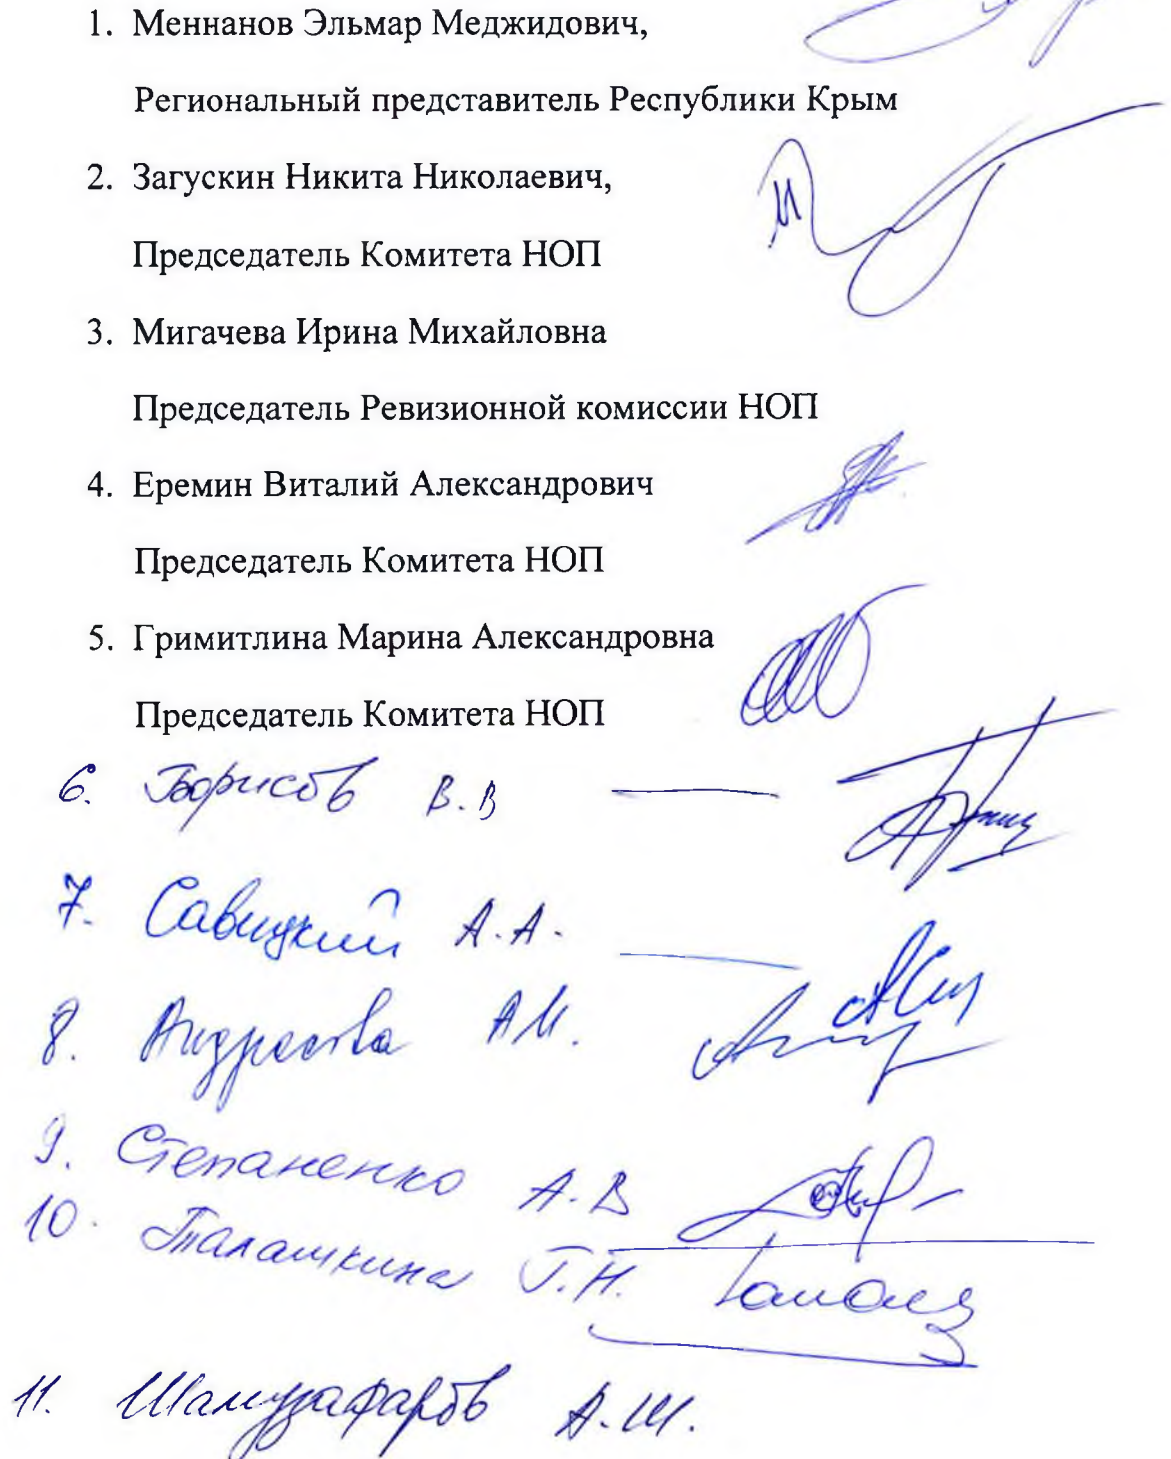 1. Меннанов Эльмар Меджидович,
Региональный представитель Республики Крым
2. Загускин Никита Николаевич,
Председатель Комитета НОП
3. Мигачева Ирина Михайловна
Председатель Ревизионной комиссии НОП
4. Еремин Виталий Александрович
Председатель Комитета НОП
5. Гримитлина Марина Александровна
Председатель Комитета НОП
6. Борисов В.В
7. Савицкий А.А.
8. А.М.
9. Степаненко А.В
10. Талашкина Г.Н.
11. Шамузафаров А.Ш.